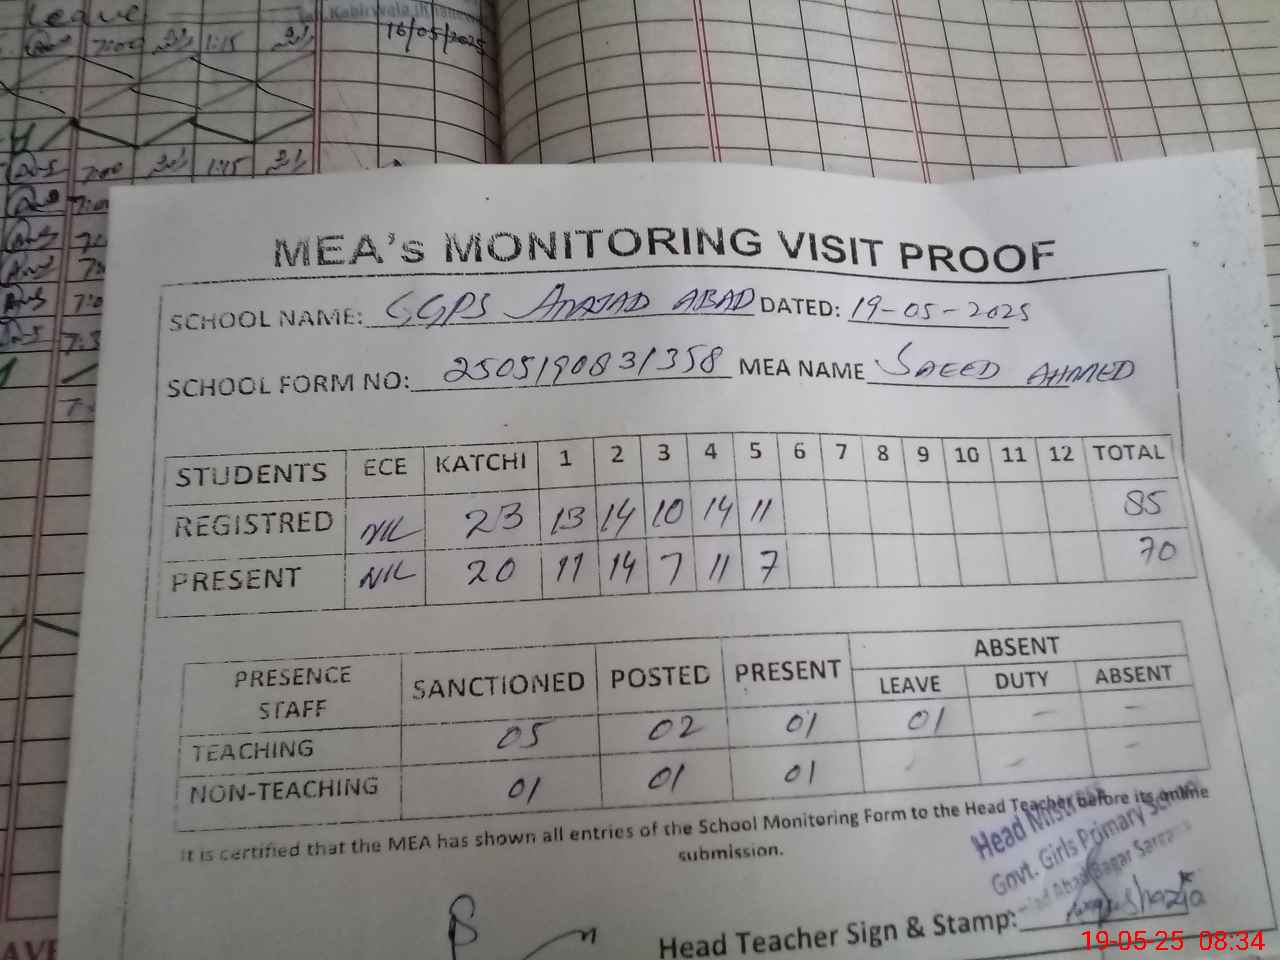 Leave
16/05/2025
7:00 1:15
7:00 1:15
MEA's MONITORING VISIT PROOF
SCHOOL NAME: GGPS AMJAD ABAD DATED: 19-05-2025
SCHOOL FORM NO: 2505190831358 MEA NAME SAEED AHMED
STUDENTS ECE KATCHI 1 2 3 4 5 6 7 8 9 10 11 12 TOTAL
REGISTRED NIL 23 13 14 10 14 11 85
PRESENT NIL 20 11 14 7 11 7 70
PRESENCE STAFF SANCTIONED POSTED PRESENT ABSENT
LEAVE DUTY ABSENT
TEACHING 05 02 01 01 - -
NON-TEACHING 01 01 01 - - -
It is certified that the MEA has shown all entries of the School Monitoring Form to the Head Teacher before its online
submission.
Head Mistress
Govt. Girls Primary School
Abad Bagar Sargana
Head Teacher Sign & Stamp: Shazia
19-05-25 08:34